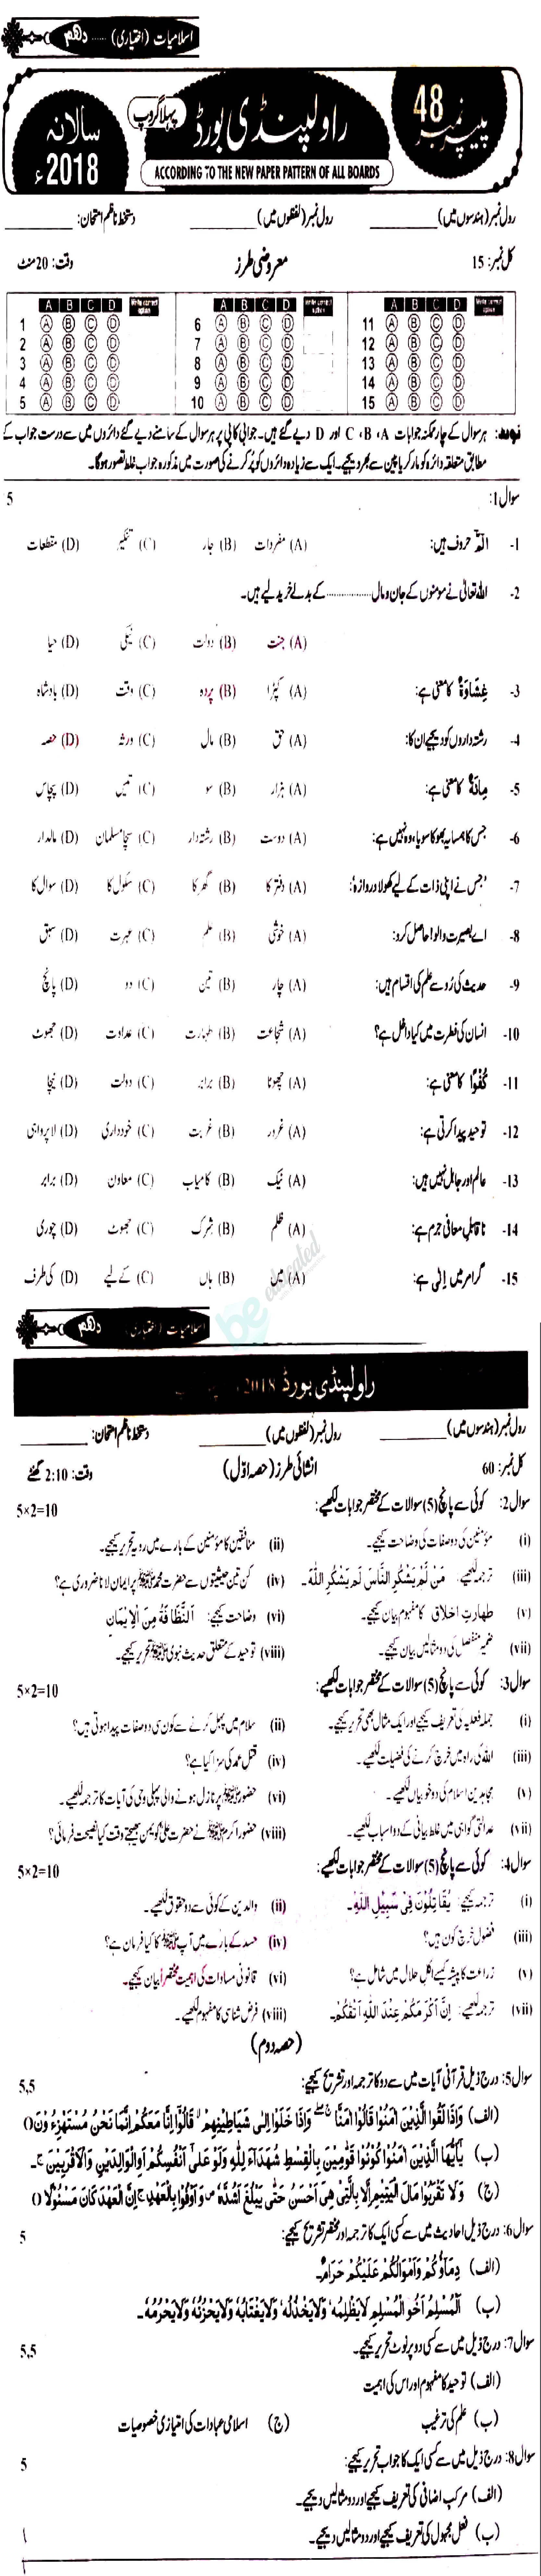 اسلامیات (اختیاری) ...... دہم
پیپر نمبر 48
راولپنڈی بورڈ
پہلا گروپ
سالانہ 2018ء
ACCORDING TO THE NEW PAPER PATTERN OF ALL BOARDS
رول نمبر (ہندسوں میں) ________ رول نمبر (لفظوں میں) ________ دستخط ناظم امتحان: ________
کل نمبر: 15 معروضی طرز وقت: 20 منٹ
A B C D Write correct option A B C D Write correct option A B C D Write correct option
1 A B C D 6 A B C D 11 A B C D
2 A B C D 7 A B C D 12 A B C D
3 A B C D 8 A B C D 13 A B C D
4 A B C D 9 A B C D 14 A B C D
5 A B C D 10 A B C D 15 A B C D
نوٹ: ہر سوال کے چار ممکنہ جوابات C ،B ،A اور D دیے گئے ہیں۔ جوابی کاپی پر ہر سوال کے سامنے دیے گئے دائروں میں سے درست جواب کے
مطابق متعلقہ دائرہ کو مارکر یا پین سے بھر دیجیے۔ ایک سے زیادہ دائروں کو پُر کرنے کی صورت میں مذکورہ جواب غلط تصور ہوگا۔
سوال 1: 5
1- الٓمّٓ حروف ہیں: (A) مفردات (B) جار (C) تنکیر (D) مقطعات
2- اللہ تعالیٰ نے مومنوں کے جان و مال ................ کے بدلے خرید لیے ہیں۔
(A) جنت (B) دولت (C) نیکی (D) حیا
3- غِشَاوَةٌ کا معنی ہے: (A) کپڑا (B) پردہ (C) وقت (D) بادشاہ
4- رشتہ داروں کو دیجیے ان کا: (A) حق (B) مال (C) ورثہ (D) حصہ
5- مِائَةٌ کا معنی ہے: (A) ہزار (B) سو (C) تیس (D) پچاس
6- جس کا ہمسایہ بھوکا سویا، وہ نہیں ہے: (A) دوست (B) رشتہ دار (C) سچا مسلمان (D) مالدار
7- 'جس نے اپنی ذات کے لیے کھولا دروازہ': (A) دفتر کا (B) گھر کا (C) سکول کا (D) سوال کا
8- اے بصیرت والو! حاصل کرو: (A) خوشی (B) علم (C) عبرت (D) سبق
9- حدیث کی رُو سے علم کی اقسام ہیں: (A) چار (B) تین (C) دو (D) پانچ
10- انسان کی فطرت میں کیا داخل ہے؟ (A) شجاعت (B) طہارت (C) عداوت (D) جھوٹ
11- كُفُوًا کا معنی ہے: (A) چھوٹا (B) برابر (C) دولت (D) نیچا
12- توحید پیدا کرتی ہے: (A) غرور (B) غربت (C) خودداری (D) لاپرواہی
13- عالم اور جاہل نہیں ہیں: (A) نیک (B) کامیاب (C) معاون (D) برابر
14- ناقابلِ معافی جرم ہے: (A) ظلم (B) شرک (C) جھوٹ (D) چوری
15- گرامر میں اِلٰی ہے: (A) میں (B) ہاں (C) کے لیے (D) کی طرف
be educated
اسلامیات (اختیاری) دہم
راولپنڈی بورڈ 2018
رول نمبر (ہندسوں میں) ________ رول نمبر (لفظوں میں) ________ دستخط ناظم امتحان: ________
کل نمبر: 60 انشائی طرز (حصہ اول) وقت: 2:10 گھنٹے
سوال 2: کوئی سے پانچ (5) سوالات کے مختصر جوابات لکھیے: 5×2=10
(i) مومنین کی دو صفات کی وضاحت کیجیے۔ (ii) منافقین کا مومنین کے بارے میں رویہ تحریر کیجیے۔
(iii) ترجمہ لکھیے: مَنْ لَّمْ يَشْكُرِ النَّاسَ لَمْ يَشْكُرِ اللّٰهَ۔ (iv) کن تین حیثیتوں سے حضرت محمد ﷺ پر ایمان لانا ضروری ہے؟
(v) طہارتِ اخلاق کا مفہوم بیان کیجیے۔ (vi) وضاحت کیجیے: اَلنَّظَافَةُ مِنَ الْاِيْمَانِ
(vii) ضمیر منفصل کی دو مثالیں بیان کیجیے۔ (viii) توحید کے متعلق حدیث نبوی ﷺ تحریر کیجیے۔
سوال 3: کوئی سے پانچ (5) سوالات کے مختصر جوابات لکھیے: 5×2=10
(i) جملہ فعلیہ کی تعریف کیجیے اور ایک مثال بھی تحریر کیجیے۔ (ii) سلام میں پہل کرنے سے کون سی دو صفات پیدا ہوتی ہیں؟
(iii) اللہ کی راہ میں خرچ کرنے کی فضیلت لکھیے۔ (iv) قتلِ عمد کی سزا کیا ہے؟
(v) مجاہدین اسلام کی دو خوبیاں لکھیے۔ (vi) حضور ﷺ پر نازل ہونے والی پہلی وحی کی آیات کا ترجمہ لکھیے۔
(vii) عدالتی گواہی میں غلط بیانی کے دو اسباب لکھیے۔ (viii) حضور اکرم ﷺ نے حضرت علیؓ کو یمن بھیجتے وقت کیا نصیحت فرمائی؟
سوال 4: کوئی سے پانچ (5) سوالات کے مختصر جوابات لکھیے: 5×2=10
(i) ترجمہ کیجیے: يُقَاتِلُوْنَ فِيْ سَبِيْلِ اللّٰهِ۔ (ii) والدین کے کوئی سے دو حقوق لکھیے۔
(iii) فضول خرچ کون ہیں؟ (iv) حسد کے بارے میں آپ ﷺ کا کیا فرمان ہے؟
(v) زراعت کا پیشہ کیسے اکلِ حلال میں شامل ہے؟ (vi) قانونی مساوات کی اہمیت مختصراً بیان کیجیے۔
(vii) ترجمہ لکھیے: اِنَّ اَكْرَمَكُمْ عِنْدَ اللّٰهِ اَتْقٰكُمْ۔ (viii) فرض شناسی کا مفہوم لکھیے۔
(حصہ دوم)
سوال 5: درج ذیل قرآنی آیات میں سے دو کا ترجمہ اور تشریح کیجیے: 5,5
(الف) وَاِذَا لَقُوا الَّذِيْنَ اٰمَنُوْا قَالُوْٓا اٰمَنَّا ۚ وَاِذَا خَلَوْا اِلٰى شَيَاطِيْنِهِمْ ۙ قَالُوْٓا اِنَّا مَعَكُمْ اِنَّمَا نَحْنُ مُسْتَهْزِءُوْنَ۝
(ب) يٰٓاَيُّهَا الَّذِيْنَ اٰمَنُوْا كُوْنُوْا قَوّٰمِيْنَ بِالْقِسْطِ شُهَدَآءَ لِلّٰهِ وَلَوْ عَلٰٓى اَنْفُسِكُمْ اَوِ الْوَالِدَيْنِ وَالْاَقْرَبِيْنَ ۚ۔
(ج) وَلَا تَقْرَبُوْا مَالَ الْيَتِيْمِ اِلَّا بِالَّتِيْ هِيَ اَحْسَنُ حَتّٰى يَبْلُغَ اَشُدَّهٗ ص وَاَوْفُوْا بِالْعَهْدِ ج اِنَّ الْعَهْدَ كَانَ مَسْئُوْلًا۝
سوال 6: درج ذیل احادیث میں سے کسی ایک کا ترجمہ اور مختصر تشریح کیجیے: 5
(الف) دِمَاؤُكُمْ وَاَمْوَالُكُمْ عَلَيْكُمْ حَرَامٌ۔
(ب) اَلْمُسْلِمُ اَخُو الْمُسْلِمِ لَايَظْلِمُهٗ وَلَايَخْذُلُهٗ وَلَايَغْتَابُهٗ وَلَايَحْزُنُهٗ وَلَايَحْرُمُهٗ۔
سوال 7: درج ذیل میں سے کسی دو پر نوٹ تحریر کیجیے۔ 5,5
(الف) توحید کا مفہوم اور اس کی اہمیت
(ب) علم کی ترغیب (ج) اسلامی عبادات کی امتیازی خصوصیات
سوال 8: درج ذیل میں سے کسی ایک کا جواب تحریر کیجیے: 5
(الف) مرکب اضافی کی تعریف کیجیے اور دو مثالیں دیجیے۔
(ب) فعل مجہول کی تعریف کیجیے اور دو مثالیں دیجیے۔